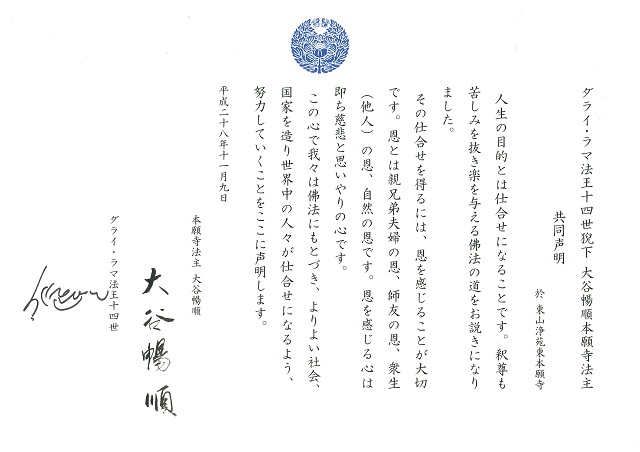 ダライ・ラマ法王十四世猊下 大谷暢順本願寺法主
共同声明
於 東山浄苑東本願寺
人生の目的とは仕合せになることです。釈尊も
苦しみを抜き楽を与える佛法の道をお説きになり
ました。
その仕合せを得るには、恩を感じることが大切
です。恩とは親兄弟夫婦の恩、師友の恩、衆生
（他人）の恩、自然の恩です。恩を感じる心は
即ち慈悲と思いやりの心です。
この心で我々は佛法にもとづき、よりよい社会、
国家を造り世界中の人々が仕合せになるよう、
努力していくことをここに声明します。
平成二十八年十一月九日
本願寺法主 大谷暢順
大谷暢順
ダライ・ラマ法王十四世